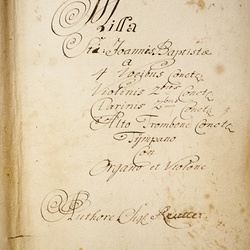 Missa
Sti: Joannis Baptistæ
a
4 Vocibus Conctis
Violinis 2bus Conctis
Clarinis 2bus Conctis
Alto Trombone Concto
Tympano
Con
Organo et Violone
Authore Sigl: Reutter